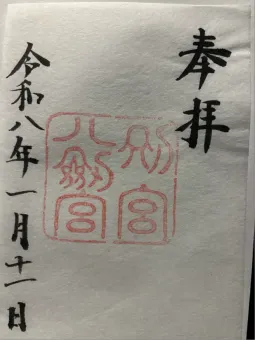 奉拝
別宮
八剣宮
令和八年一月十一日